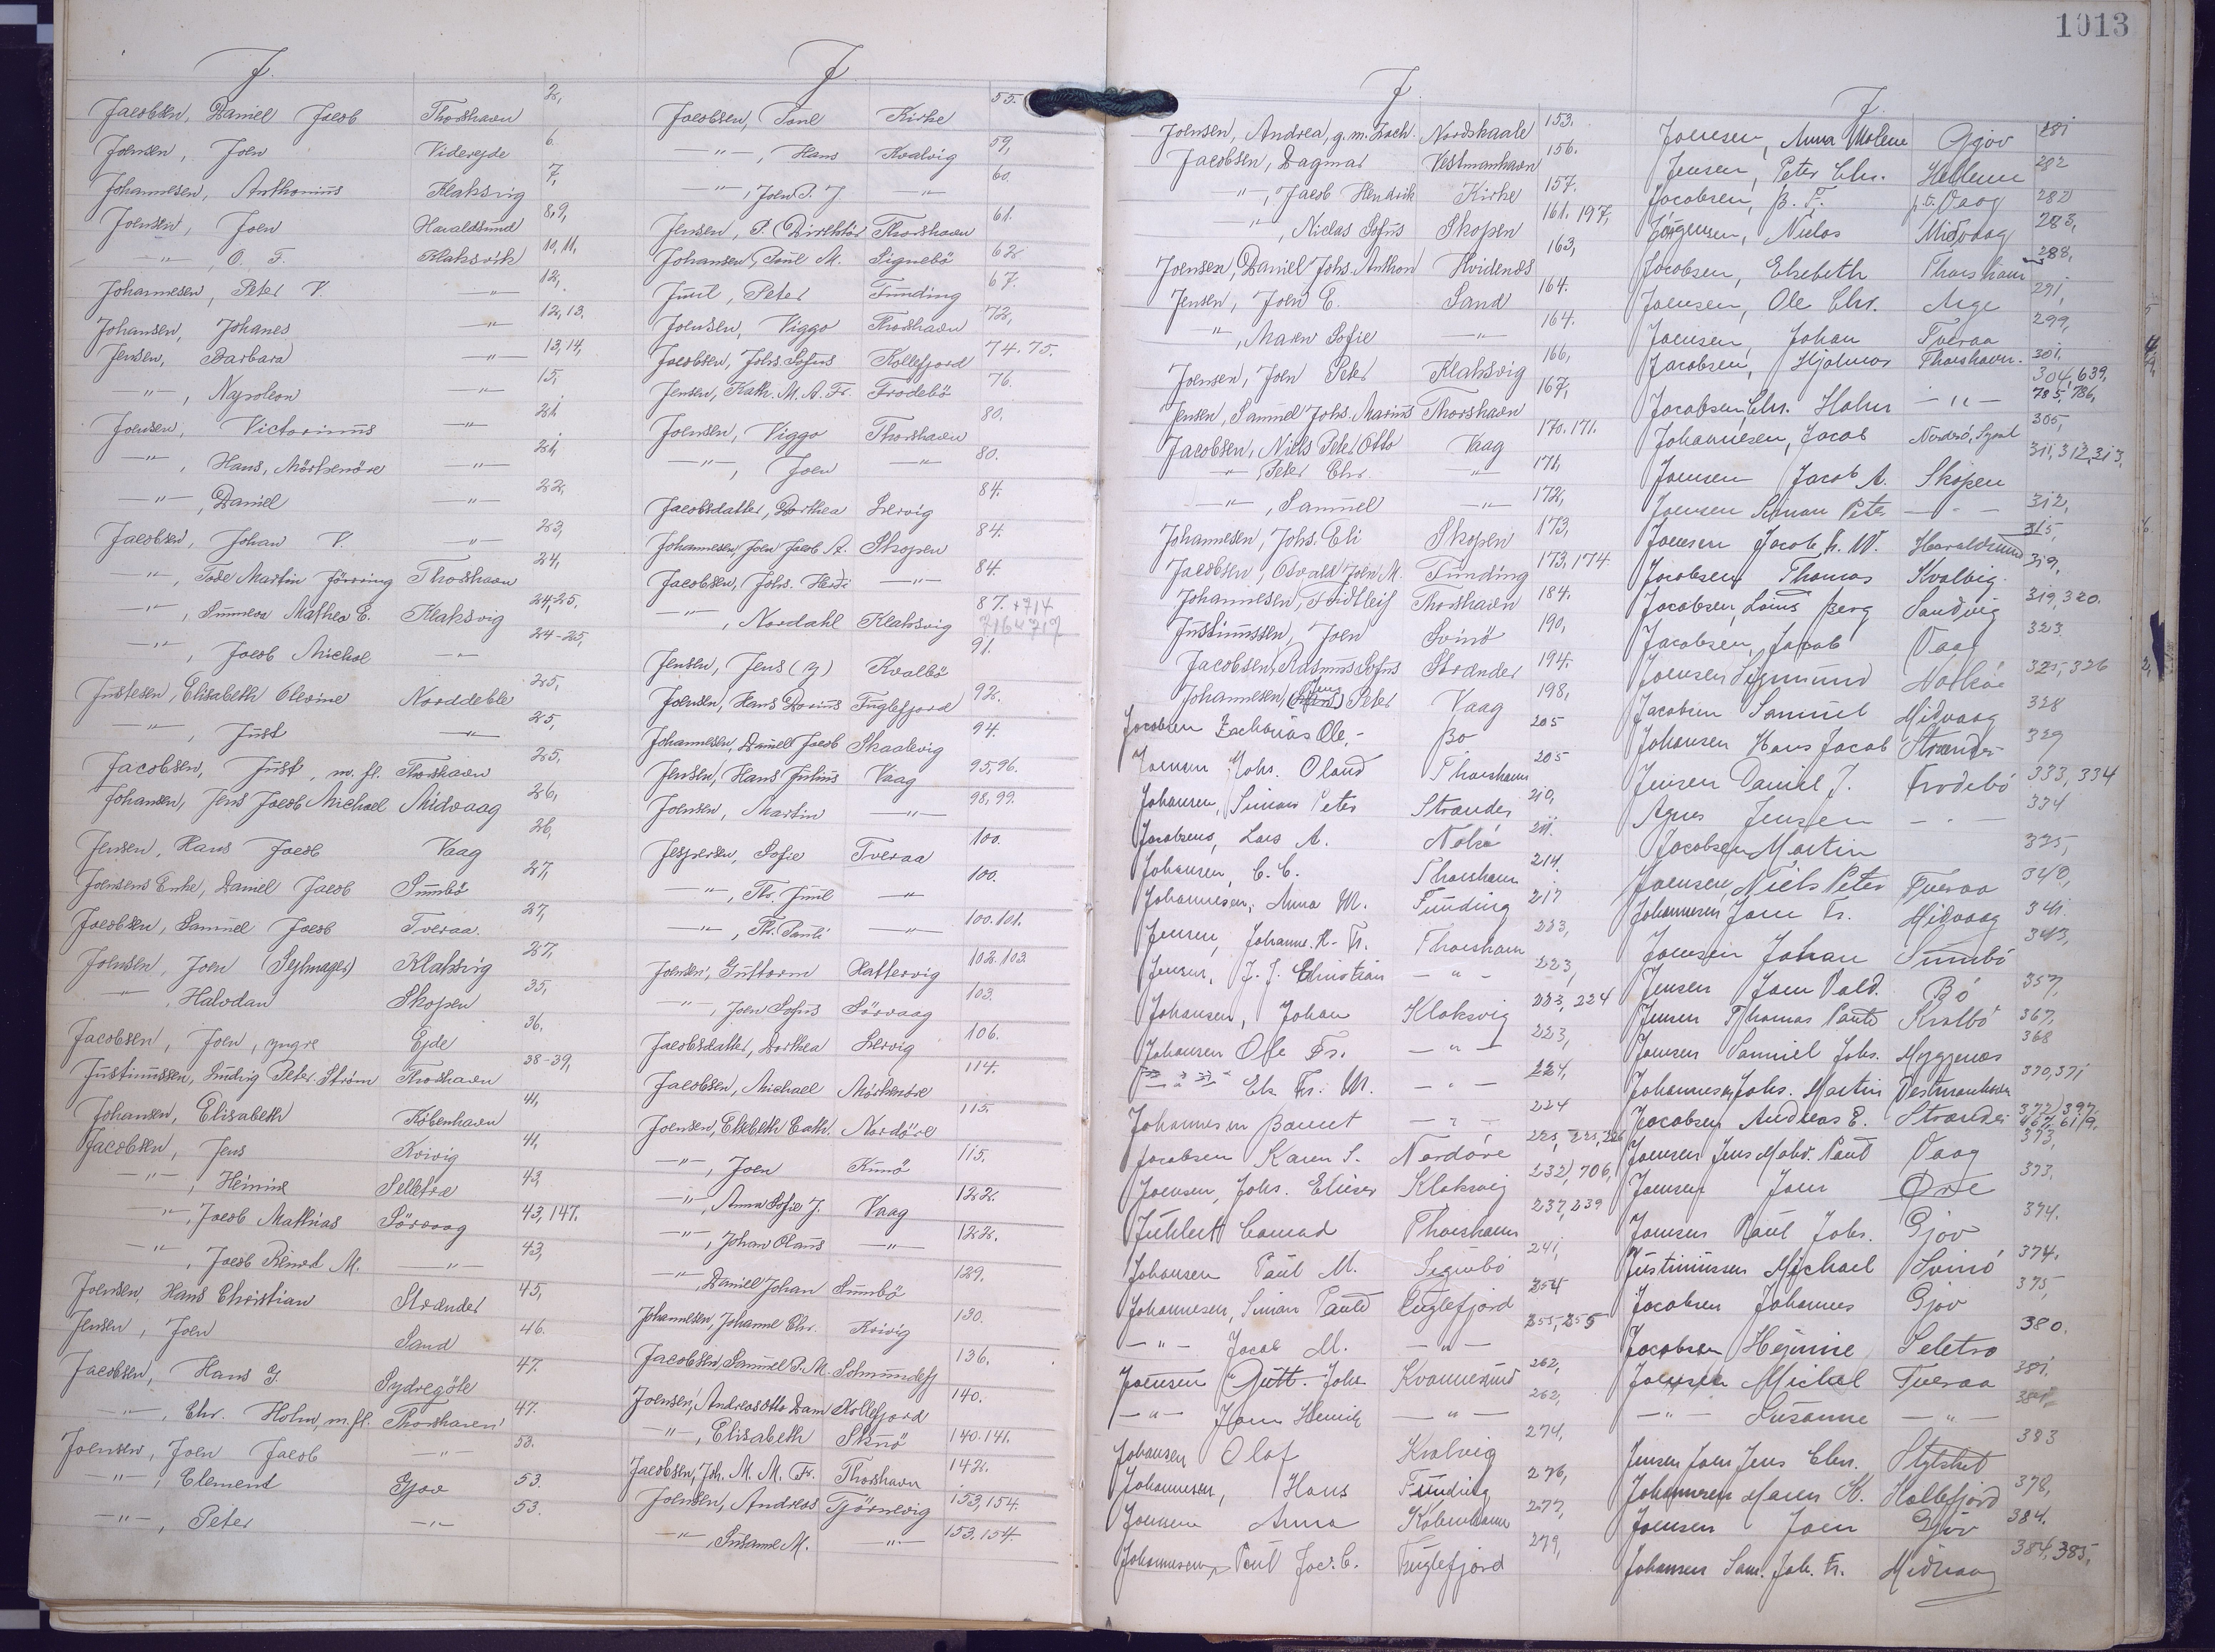 1013
J.
Jacobsen, Daniel Jacob Thorshavn 2,
Joensen, Joen Viderejde 6.
Johannesen, Anthonius Klaksvig 7,
Joensen, Joen Haraldsund 8,9,
-"-, O. F. Klaksvik 10,11,
Johannesen, Peter V. -"- 12,
Johansen, Johanes -"- 12,13,
Jensen, Barbara -"- 13,14,
-"-, Napoleon -"- 15,
Joensen, Victorinus -"- 21,
-"-, Hans, Mörkenöre -"- 21,
-"-, Daniel -"- 22,
Jacobsen, Johan V. -"- 23,
-"-, Tode Martin Thorshavn 24,
-"-, Mathea E. Klaksvig 24,25,
-"-, Jacob Michal -"- 24-25,
Justesen, Elisabeth Olevine Norddeble 25,
-"-, Just -"- 25,
Jacobsen, Just, m. fl. Thorshavn 25,
Johansen, Jens Jacob Michael Midvaag 26,
Jensen, Hans Jacob Vaag 26,
Joensens Enke, Daniel Jacob Sumbö 27,
Jacobsen, Samuel Jacob Tveraa. 27,
Joensen, Joen (Sejlmager) Klaksvig 27,
-"-, Halvdan Skopen 35,
Jacobsen, Joen, yngre Ejde 36.
Justinussen, Ludvig Peter Ström Thorshavn 38-39,
Johansen, Elisabeth Köbenhavn 41,
Jacobsen, Jens Kvivig 41,
-"-, Heinine Selletræ 43,
-"-, Jacob Mathias Sörvaag 43,147.
-"-, Jacob M. -"- 43,
Joensen, Hans Christian Strænder 45,
Jensen, Joen Sand 46.
Jacobsen, Hans J. Sydregöte 47.
-"-, Chr. Holm, m. fl. Thorshavn 47.
Joensen, Joen Jacob -"- 53.
-"-, Clement Gjov 53.
-"-, Peter -"- 53.
J
Jacobsen, Poul Kirke 55.
-"-, Hans Kvalvig 59,
-"-, Joen P. J. -"- 60.
Jensen, P. (Direktör) Thorshavn 61.
Johansen, Poul M. Signebö 62
Juul, Peter Funding 67.
Joensen, Viggo Thorshavn 72,
Jacobsen, Johs. Sofus Kollefjord 74.75.
Jensen, Kath. M. A. Fr. Frodebö 76.
Joensen, Viggo Thorshavn 80.
-"-, Joen -"- 80.
Jacobsdatter, Dorthea Lervig 84.
Johannesen, Joen Jacob A. Skopen 84.
Jacobsen, Johs. -"- 84.
-"-, Nordahl Klaksvig 87. +714 716 717
Jensen, Jens (y) Kvalbö 91.
Joensen, Hans Dorius Fuglefjord 92.
Johannesen, Daniel Jacob Skaalevig 94.
Jensen, Hans Julius Vaag 95,96.
Joensen, Martin -"- 98,99.
Jespersen, Sofie Tveraa 100.
-"-, Th. Juul -"- 100.
-"-, Th. Pauli -"- 100.101.
Joensen, Guttorm Hattervig 102.103
-"-, Joen Sofus Sörvaag 103.
Jacobsdatter, Dorthea Lervig 106.
Jacobsen, Michael Mörkenöre 114.
Joensen, Elsebeth Cath. Nordöre 115.
-"-, Joen Kunö 115.
-"-, Anna Sofie J. Vaag 122.
-"-, Johan Olaus -"- 122.
-"-, Daniel Johan Sumbö 129.
Johannesen, Johanne Chr. Kvivig 130.
Jacobsen, Samuel P. M. 136.
Joensen, Andreas Otto Dam Kollefjord 140.
-"-, Elisabeth 140.141.
Jacobsen, Joh. M. M. Fr. Thorshavn 142.
Joensen, Andreas Tjörnevig 153,154.
-"-, Susanne M. -"- 153.154.
J.
Joensen, Andrea, g. m. Zach. Nordskaale 153.
Jacobsen, Dagmar Vestmanhavn 156.
-"-, Jacob Hendrik Kirke 157.
-"-, Niclas Sofus Skopen 161. 197,
Joensen, Daniel Johs. Anthon Hvidenæs 163,
Jensen, Joen E. Sand 164.
-"-, Maren Sofie -"- 164.
Joensen, Joen Peter Klaksvig 166,
Jensen, Samuel Johs. Marius Thorshavn 167,
Jacobsen, Niels Peter Otto Vaag 170.171.
-"-, Peter Chr. -"- 171,
-"-, Samuel -"- 172,
Johannesen, Johs. Eli Skopen 173,
Jacobsen, Osvald Joen M. Funding 173,174.
Johannesen, Fridtleif Thorshavn 184.
Justinussen, Joen Svinö 190,
Jacobsen, Rasmus Sofus Strænder 194.
Johannesen, Peter Vaag 198,
Jacobsen Zacharias Ole, - Bo 205
Joensen Johs. Oland Thorshavn 205
Johansen, Simon Peter Strænder 210,
Jacobsens, Lars A. Nolsó 211.
Johansen, C. C. Thorshavn 214.
Johannesen, Anna M. Funding 217
Jensen, Johanne. K. Fr. Thorshavn 223,
Jensen, J. J. Christian -"- 223,
Johansen, Johan Klaksvig 223, 224
Johansen Ole Fr. -"- 223,
-"- Els Fr. M. -"- 224,
Johannesen -"- 224
Jacobsen Karen S. Nordöre 225, 225, 226
Joensen, Johs. Elieser Klaksvig 232, 706,
Conrad Thorshavn 237, 239
Johansen Paul M. Signebö 241,
Johannesen, Simon Pauld Fuglefjord 254
-"- Jacob M. -"- 255, 255
Joensen Gutt. Joh. Kvannesund 262,
-"- Joen Henrik -"- 262,
Johansen Olaf Kvalvig 274,
Johannesen, Hans Funding 276,
Joensen Anna København 277,
Johannesen Poul Jac. C. Fuglefjord 279,
J.
Joensen, Anna Malene Gjov 281
Jensen, Peter Chr. 282
Jacobsen, P. F. Vaag 282
Jörgensen, Niclas Midvaag 283,
Jacobsen, Elsebeth Thorshavn 288,
Joensen, Ole Chr. Arge 291,
Joensen, Johan Tveraa 299,
Jacobsen, Hjalmar Thorshavn. 301,
Jacobsen, Chr. Holm -"- 304,639, 785,786,
Johannesen, Jacob 305,
Joensen Jacob A. Skopen 311,312,313,
Joensen Simon Peter -"- 312,
Joensen Jacob h. W. Haraldsund 315,
Jacobsen Thomas Kvalvig. 319,
Jacobsen, Louis Berg Sandvig 319,320.
Jacobsen, Jacob Vaag 323.
Joensen Sigmund Nolsöe 325,326
Jacobsen Samuel Midvaag 328
Johansen Hans Jacob Strænder 329
Jensen Daniel J. Frodebö 333, 334
Agnes Jensen -"- 334
Jacobsen Martin 335,
Joensen, Niels Peter Tveraa 340,
Johannesen Joen Fr. Midvaag 341.
Joensen Johan Sumbö 343,
Jensen Joen Vald. Bö 357,
Jensen Thomas Pauld Kvalbö 367,
Joensen Samuel Johs. Myggenæs 368
Johannesen, Johs. Martin Vestmanhavn 370,371
Jacobsen Andreas E. Strænder 372, 397, 467, 619,
Joensen Jens Vaag 373,
Joensen Joen Öre 373,
Joensen Paul Johs. Gjov 374.
Justinussen Michael Svinó 374.
Jacobsen Johannes Gjov 375,
Jacobsen Hejnine Seletræ 380.
Joensen Michal Tveraa 381,
-"- Susanne -"- 381,
Jensen Joen Jens Chr. 383
Johannesen Maren K. Kollefjord 378,
Joensen Joen Gjóv 384.
Johansen Sam. Joh. Fr. Midvaag 384, 385,